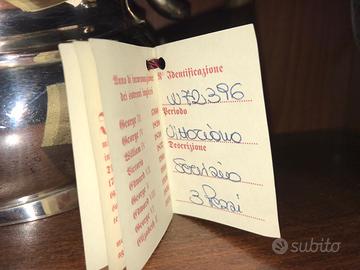 Anno di incoronazione
dei sovrani inglesi
George III
George IV
William IV
Victoria
Edward VII
George V
Edward
George
Elizabeth
N° Identificazione
W72.396
Periodo
Vittoriano
Descrizione
Servizio
3 Pezzi
subito